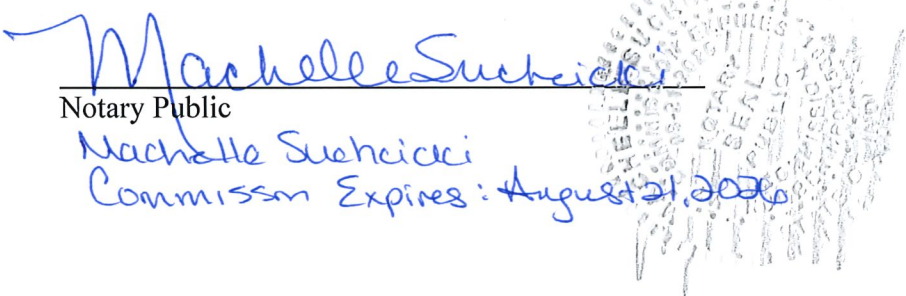 Machelle Suchcicki
Notary Public
Machelle Suchcicki
Commisson Expires: August 21, 2026
NOTARY
SEAL
PUBLIC